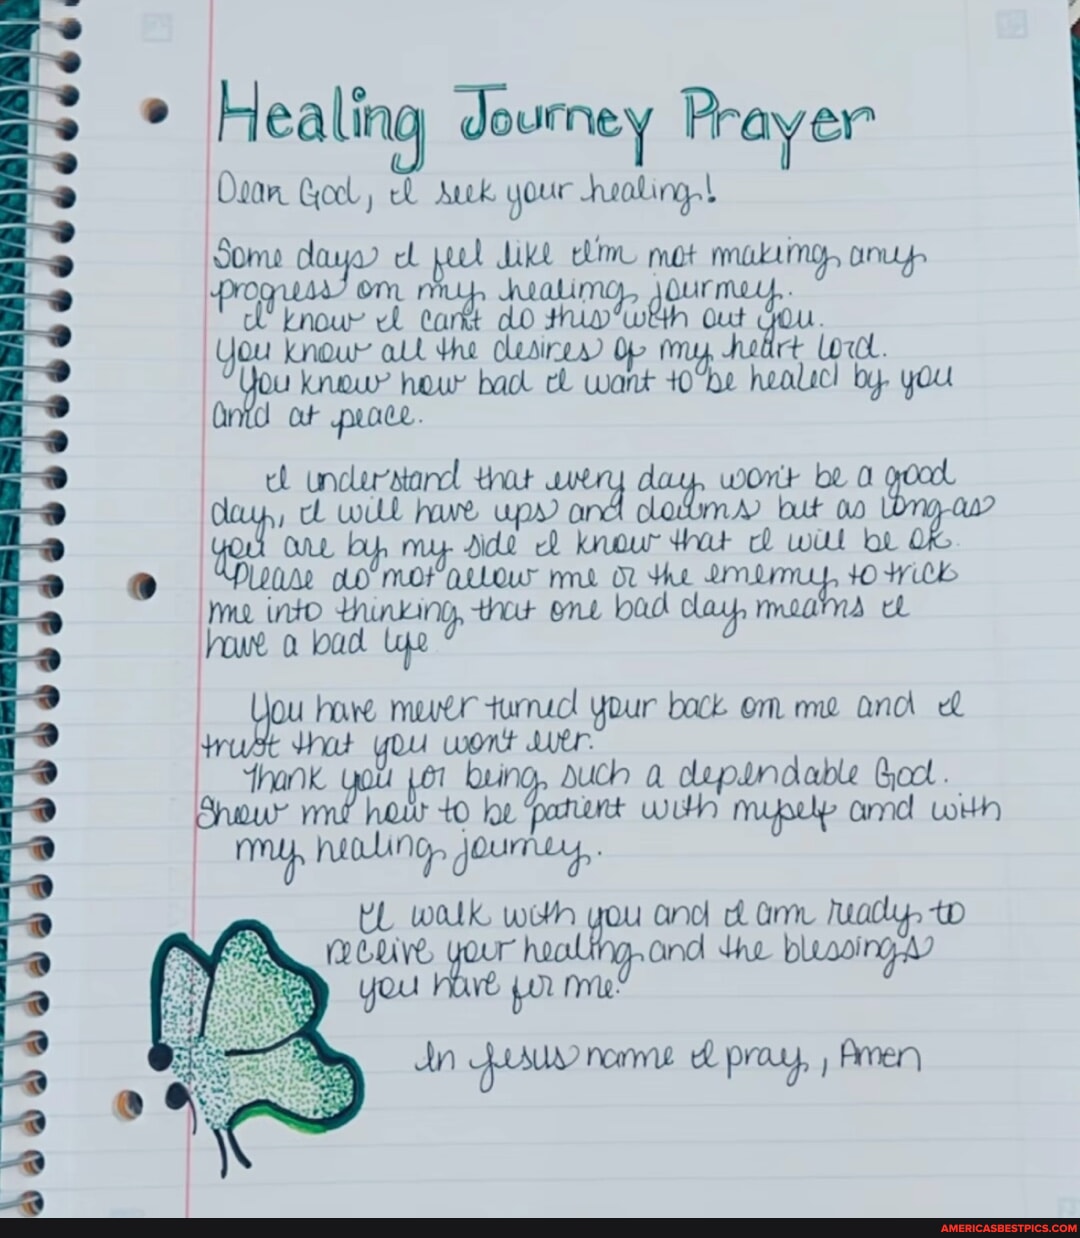 Healing Journey Prayer
Dear God, I seek your healing!
Some days I feel like I'm not making any
progress on my healing journey.
I know I can't do this with out you.
You know all the desires of my heart Lord.
You know how bad I want to be healed by you
and at peace.
I understand that every day won't be a good
day, I will have ups and downs but as long as
you are by my side I know that I will be ok.
Please do not allow me or the enemy to trick
me into thinking that one bad day means I
have a bad life
You have never turned your back on me and I
trust that you won't ever.
Thank you for being such a dependable God.
Show me how to be patient with myself and with
my healing journey.
I'll walk with you and I am ready to
receive your healing and the blessings
you have for me.
In Jesus name I pray, Amen
AMERICASBESTPICS.COM